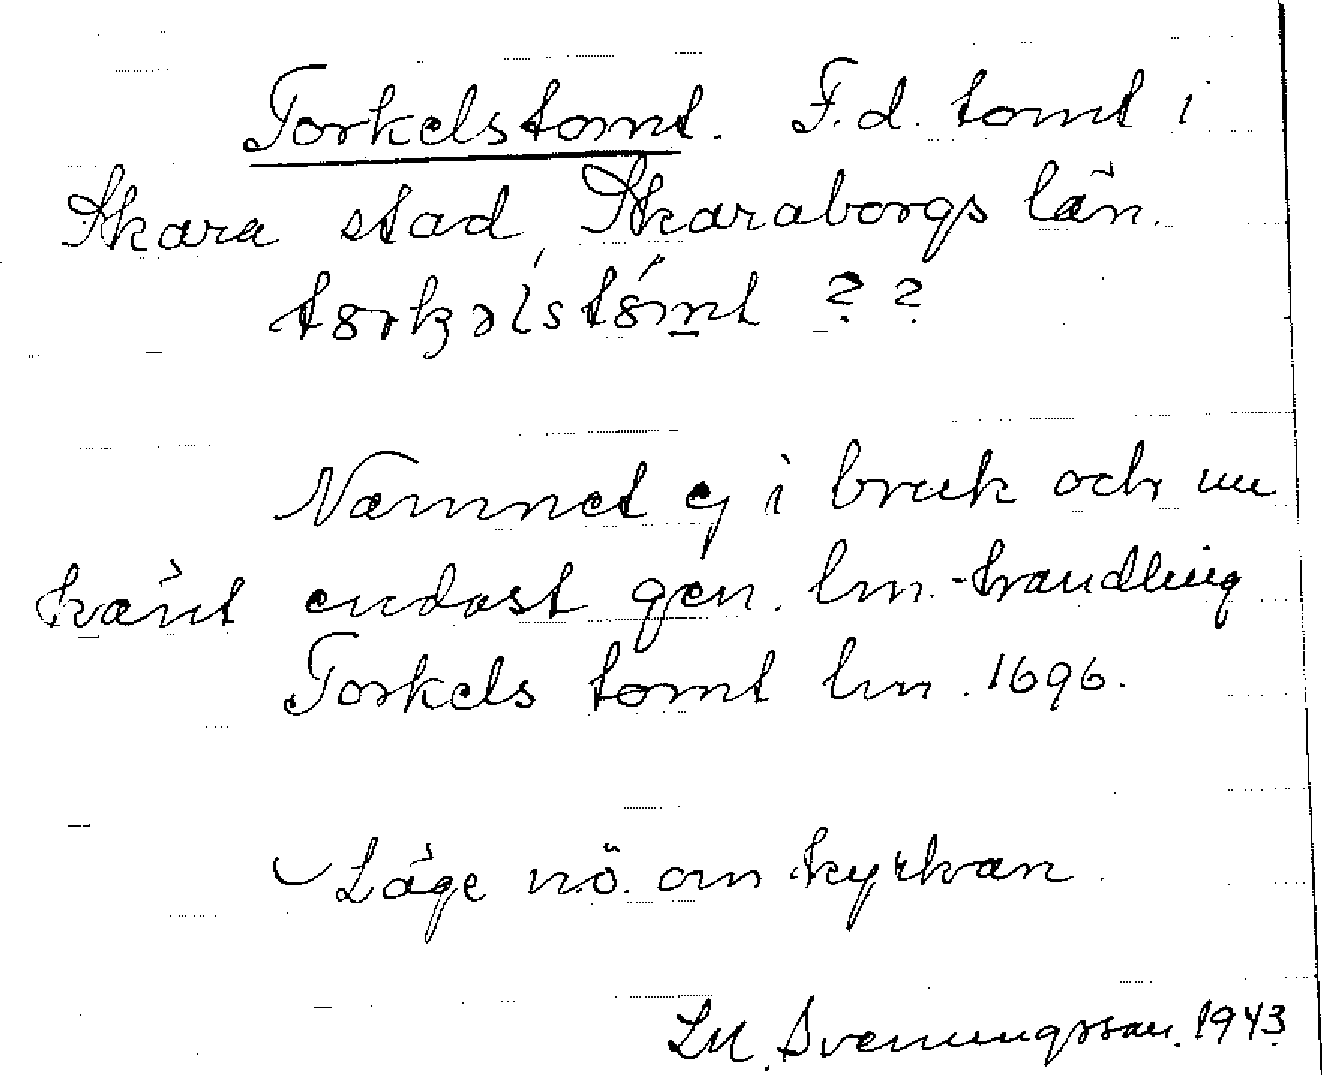 Torkelstomt. F.d. tomt i
Skara stad, Skaraborgs län.
??
Namnet ej i bruk och nu
känt endast gen. lm.-handling
Torkels tomt lm. 1696.
Läge nö. om kyrkan
LM. Svenungsson. 1943